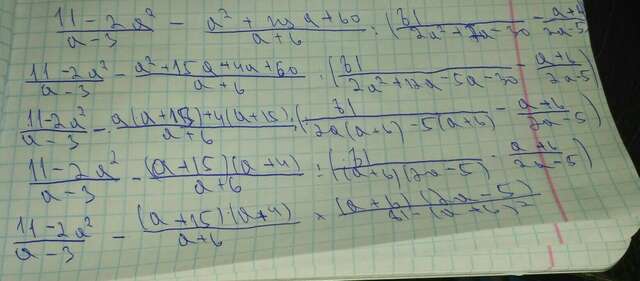 (11-2a²)/(a-3) - (a²+19a+60)/(a+6) : (81/(2a²+7a-30) - (a+6)/(2a-5))
(11-2a²)/(a-3) - (a²+15a+4a+60)/(a+6) : (81/(2a²+12a-5a-30) - (a+6)/(2a-5))
(11-2a²)/(a-3) - (a(a+15)+4(a+15))/(a+6) : (81/(2a(a+6)-5(a+6)) - (a+6)/(2a-5))
(11-2a²)/(a-3) - ((a+15)(a+4))/(a+6) : (81/((a+6)(2a-5)) - (a+6)/(2a-5))
(11-2a²)/(a-3) - ((a+15)(a+4))/(a+6) × ((a+6)(2a-5))/(81-(a+6)²)